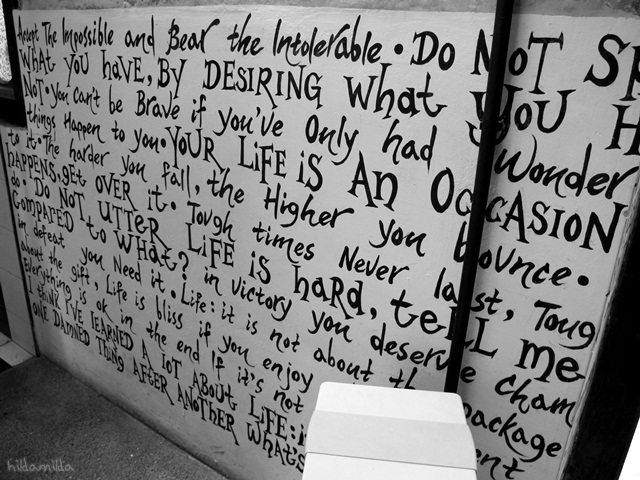 Accept The Impossible and Bear the Intolerable • Do NOT SP
What you have, BY DESIRING What you H
NOT • you can't be Brave if you've only had Wonder
things Happen to you • YOUR LiFE iS AN OCCASION
to it • The harder you fall, the Higher you bounce •
HAPPENS, get OVER it • Tough times Never last, Toug
Do NOT UTTER LiFE is hARD, tELL me
COMPARED to WHAT? in victory you deserve Cham
in defeat you Need it • Life: it is not about the package
about the gift, Life is bliss if you enjoy
Everything is ok in the end If it's not
I think I'VE LEARNED A lOT ABOUT LiFE:
ONE DAMNED THING AFTER ANOTHER WHAT'S
hildamilda